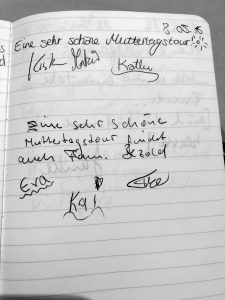 Eine sehr schöne Muttertagstour
Kathi
Eine sehr schöne
Muttertagstour findet
auch Fam. Bezold
Eva
Kai